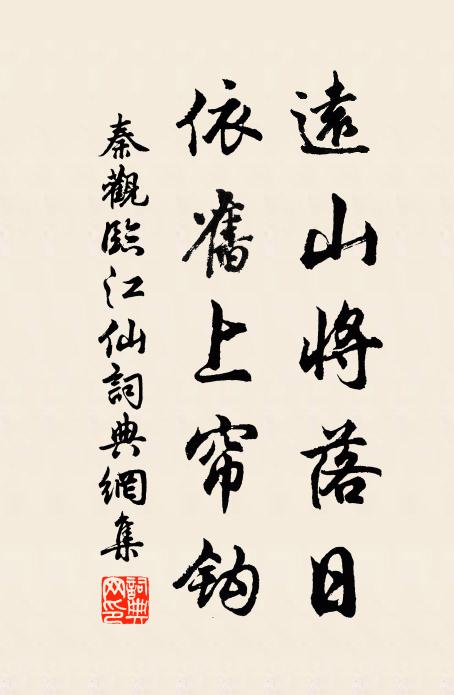 遠山將落日
依舊上帘鈎
秦觀臨江仙詞典網集
詞典網印